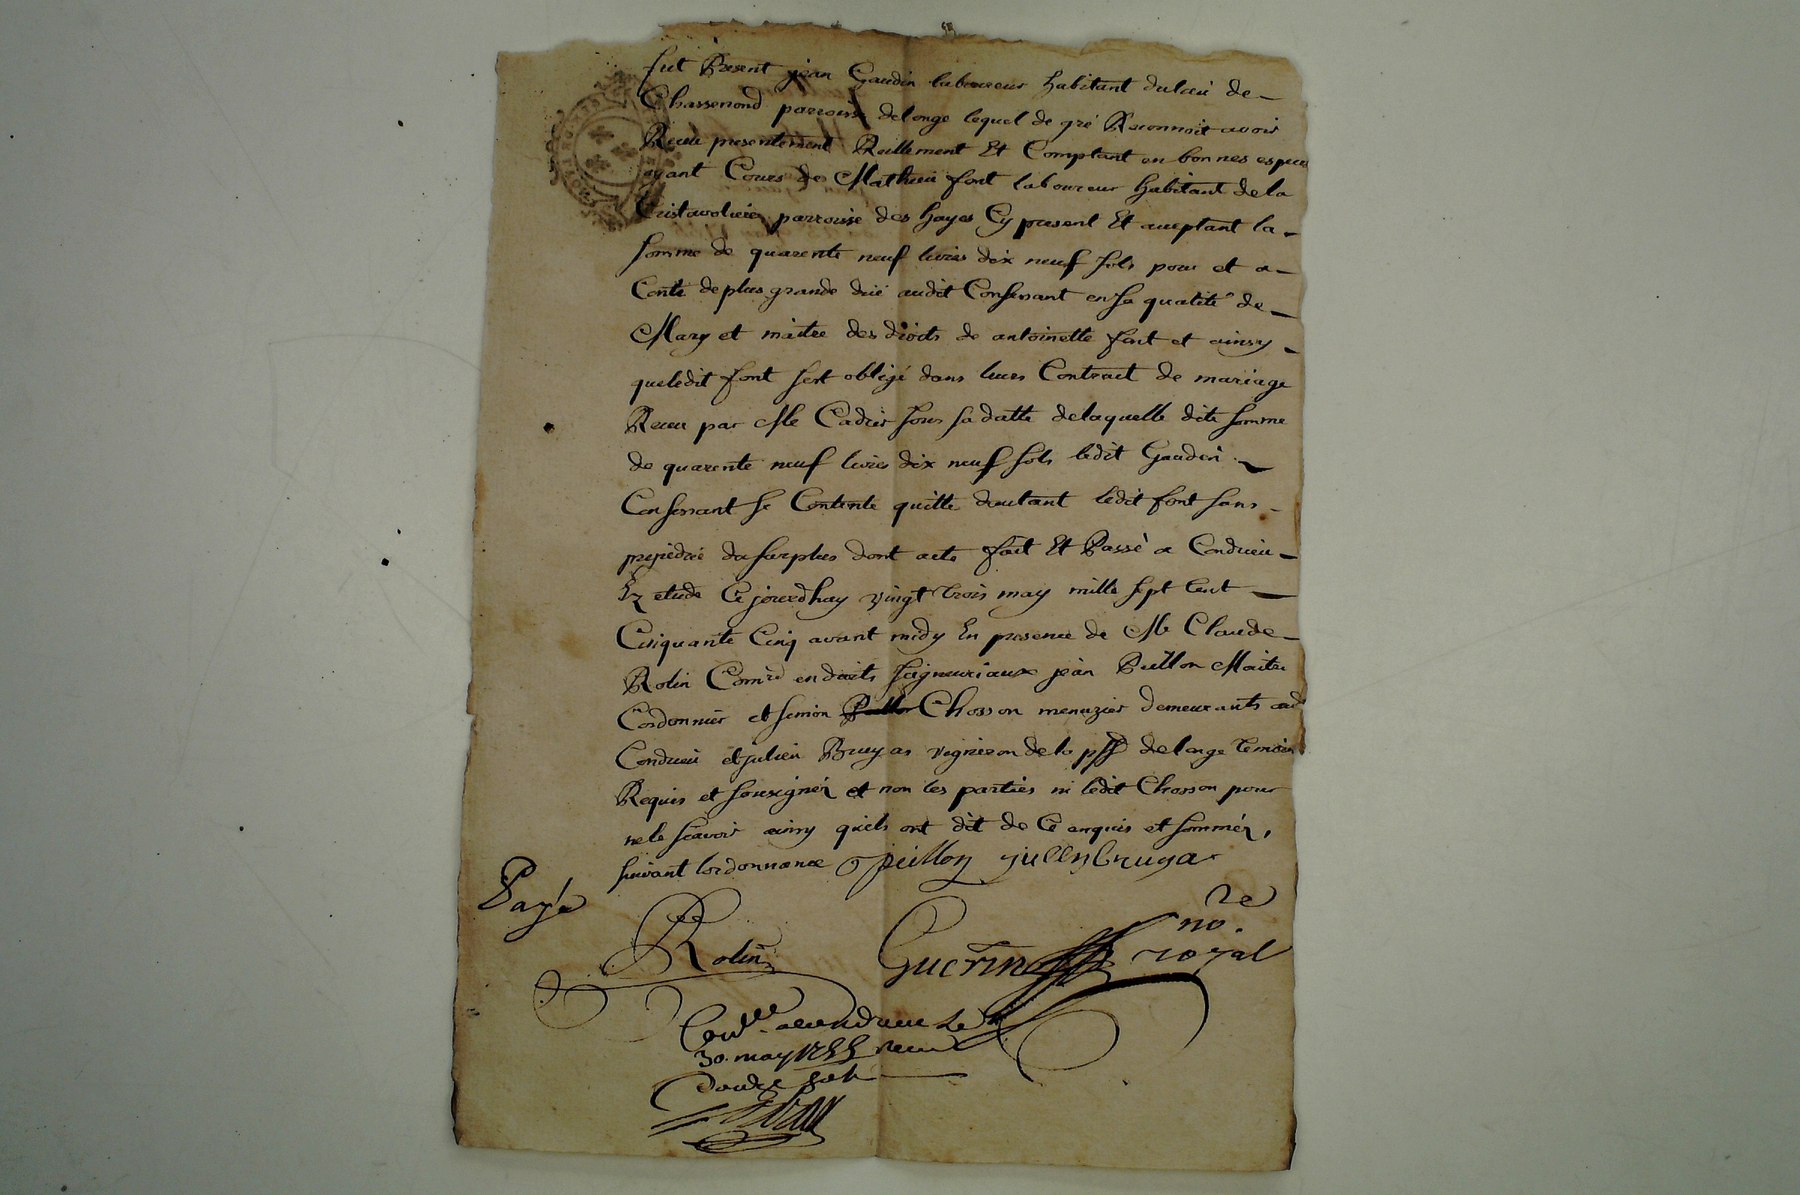 fut Present jean Gaudin laboureur habitant du lieu de
Chassenond parroisse delonge lequel de gré Reconnoit avoir
Receu presentement Reellement Et Comptant en bonnes espece
ayant Cours de Mathieu font laboureur habitant de la
parroisse des hayes Cy present Et acceptant la
somme de quarente neuf livres dix neuf sols pour et a
Conte deplus grande dué audit Confessant en sa qualité de
Mary et maitre des droits de antoinette font et ainsy
queledit font sest obligé dans leurs Contract de mariage
Receu par Me Cadier sous sa datte delaquelle dite somme
de quarente neuf livres dix neuf sols ledit Gaudin
Confessant se Contente quitte dautant ledit font sans
prejudice du surplus dont acte fait Et Passé a Condrieu
Ez etude Ce jourdhuy vingt trois may mille sept Cent
Cinquante Cinq avant midy En presence de Me Claude
Rolin Comre en droits seigneuriaux jean Peillon Maitre
Cordonnier et simon Chosson menuzier demeurants aud
Condrieu et julien Bruyas vigneron de la psse delonge temoins
Requis et sousignez et non les parties ni ledit Chosson pour
ne le scavoir ainsy quils ont dit de Ce enquis et sommez,
suivant lordonnance peillon jullin bruyas
Payé
Rolin Guerin nore royal
Conlle a Condrieu le
30 may 1755 receu
Douze sols